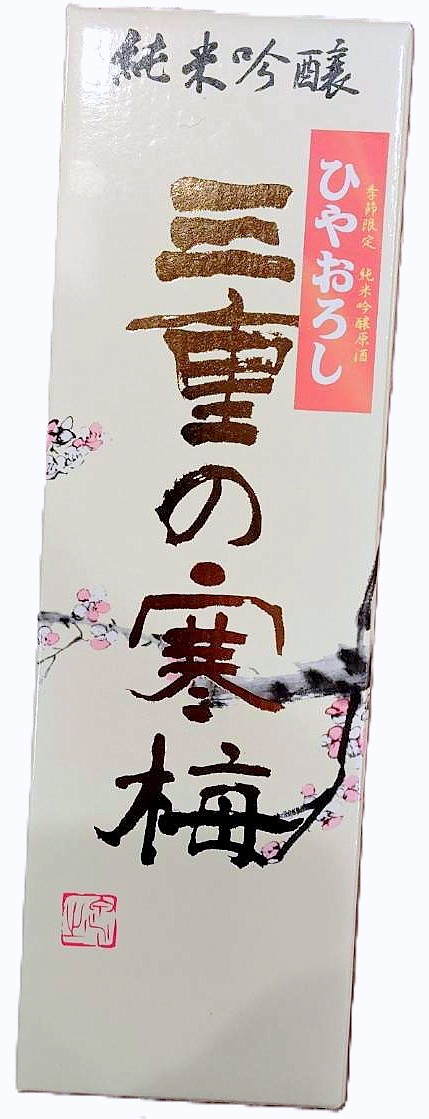 純米吟醸
季節限定 純米吟醸原酒
ひやおろし
三重の寒梅